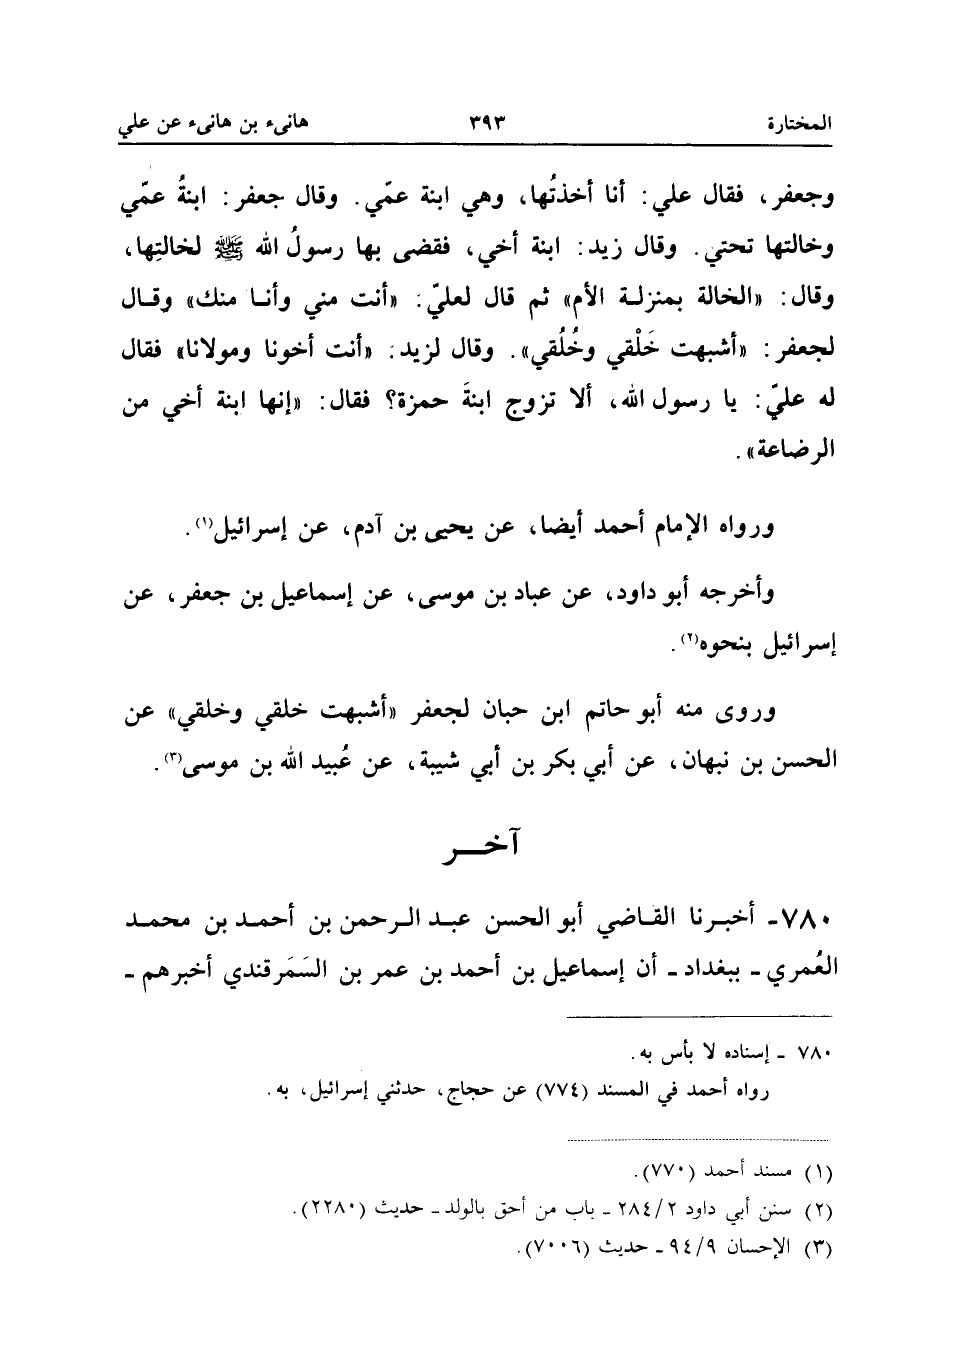 المختارة ٣٩٣ هانىء بن هانىء عن علي
وجعفر، فقال علي: أنا أخذتُها، وهي ابنة عمّي. وقال جعفر: ابنةُ عمّي
وخالتها تحتي. وقال زيد: ابنة أخي، فقضى بها رسولُ الله ﷺ لخالتِها،
وقال: «الخالة بمنزلـة الأم» ثم قال لعليّ: «أنت مني وأنـا منك» وقـال
لجعفر: «أشبهت خَلْقي وخُلُقي». وقال لزيد: «أنت أخونا ومولانا» فقال
له عليّ: يا رسول الله، ألا تزوج ابنةَ حمزة؟ فقال: «إنها ابنة أخي من
الرضاعة».
ورواه الإمام أحمد أيضا، عن يحيى بن آدم، عن إسرائيل(١).
وأخرجه أبو داود، عن عباد بن موسى، عن إسماعيل بن جعفر، عن
إسرائيل بنحوه(٢).
وروى منه أبو حاتم ابن حبان لجعفر «أشبهت خلقي وخلقي» عن
الحسن بن نبهان، عن أبي بكر بن أبي شيبة، عن عُبيد الله بن موسى(٣).
آخـــر
٧٨٠- أخبـرنا القـاضي أبو الحسن عبـد الـرحمن بن أحمـد بن محمـد
العُمري ـ ببغداد ـ أن إسماعيل بن أحمد بن عمر بن السَمَرقندي أخبرهم ـ
٧٨٠ ـ إسناده لا بأس به.
رواه أحمد في المسند (٧٧٤) عن حجاج، حدثني إسرائيل، به.
(١) مسند أحمد (٧٧٠).
(٢) سنن أبي داود ٢/ ٢٨٤ ـ باب من أحق بالولد ـ حديث (٢٢٨٠).
(٣) الإحسان ٩/ ٩٤ ـ حديث (٧٠٠٦).